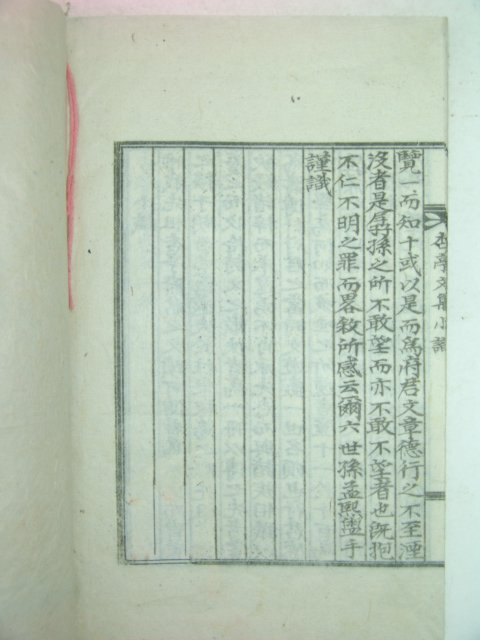 杏亭文集小識
覽一而知十或以是而爲府君文章德行之不至湮
沒者是孱孫之所不敢望而亦不敢不望者也旣抱
不仁不明之罪而畧敘所感云爾六世孫孟熙盥手
謹識